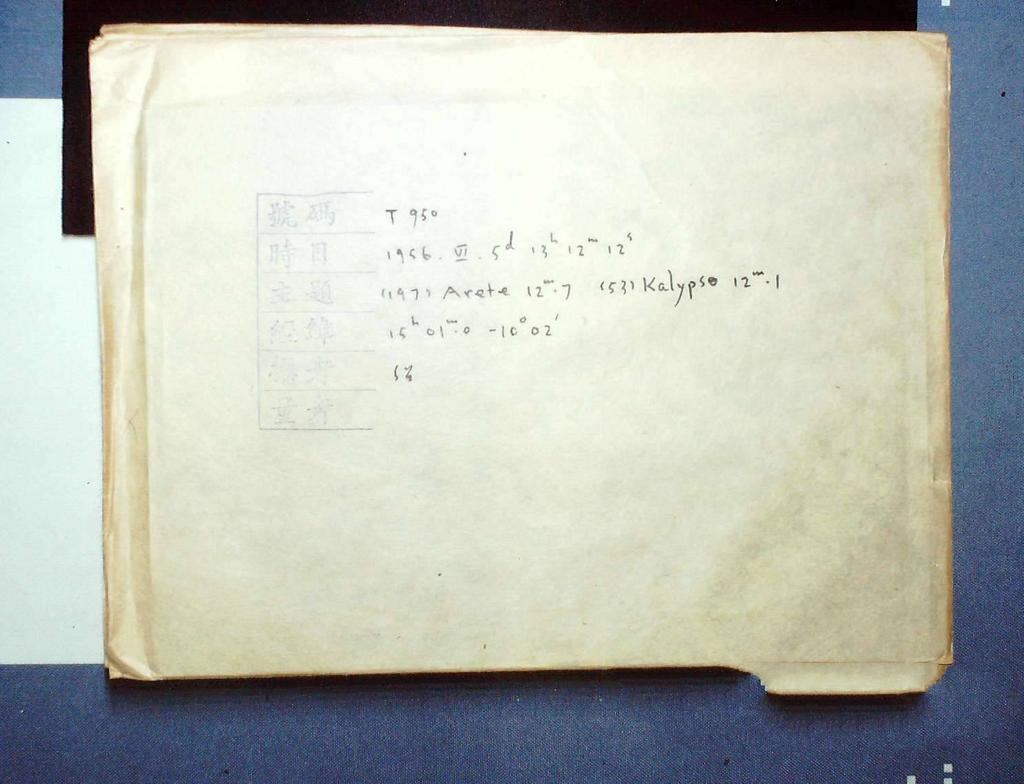 號碼 T 950
時日 1956. VI. 5ᵈ 13ʰ 12ᵐ 12ˢ
主題 (197) Arete 12ᵐ.7 (53) Kalypso 12ᵐ.1
經緯 15ʰ 01ᵐ.0 -10° 02'